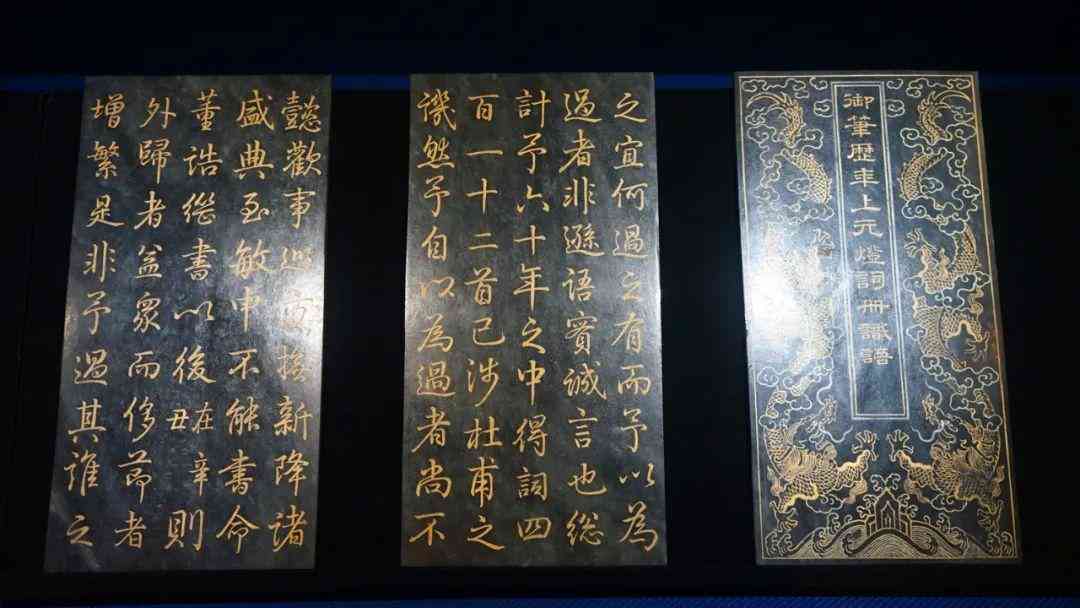 御筆歷年上元燈詞冊識語
之宜何過之有而予以為
過者非遜語實誠言也總
計予六十年之中得詞四
百一十二首已涉杜甫之
譏然予自以為過者尚不
懿歡事新降諸
盛典至敏中不能書命
董誥繼書以後在辛丑則
外歸者益衆而侈節者
增繁是非予過其誰之